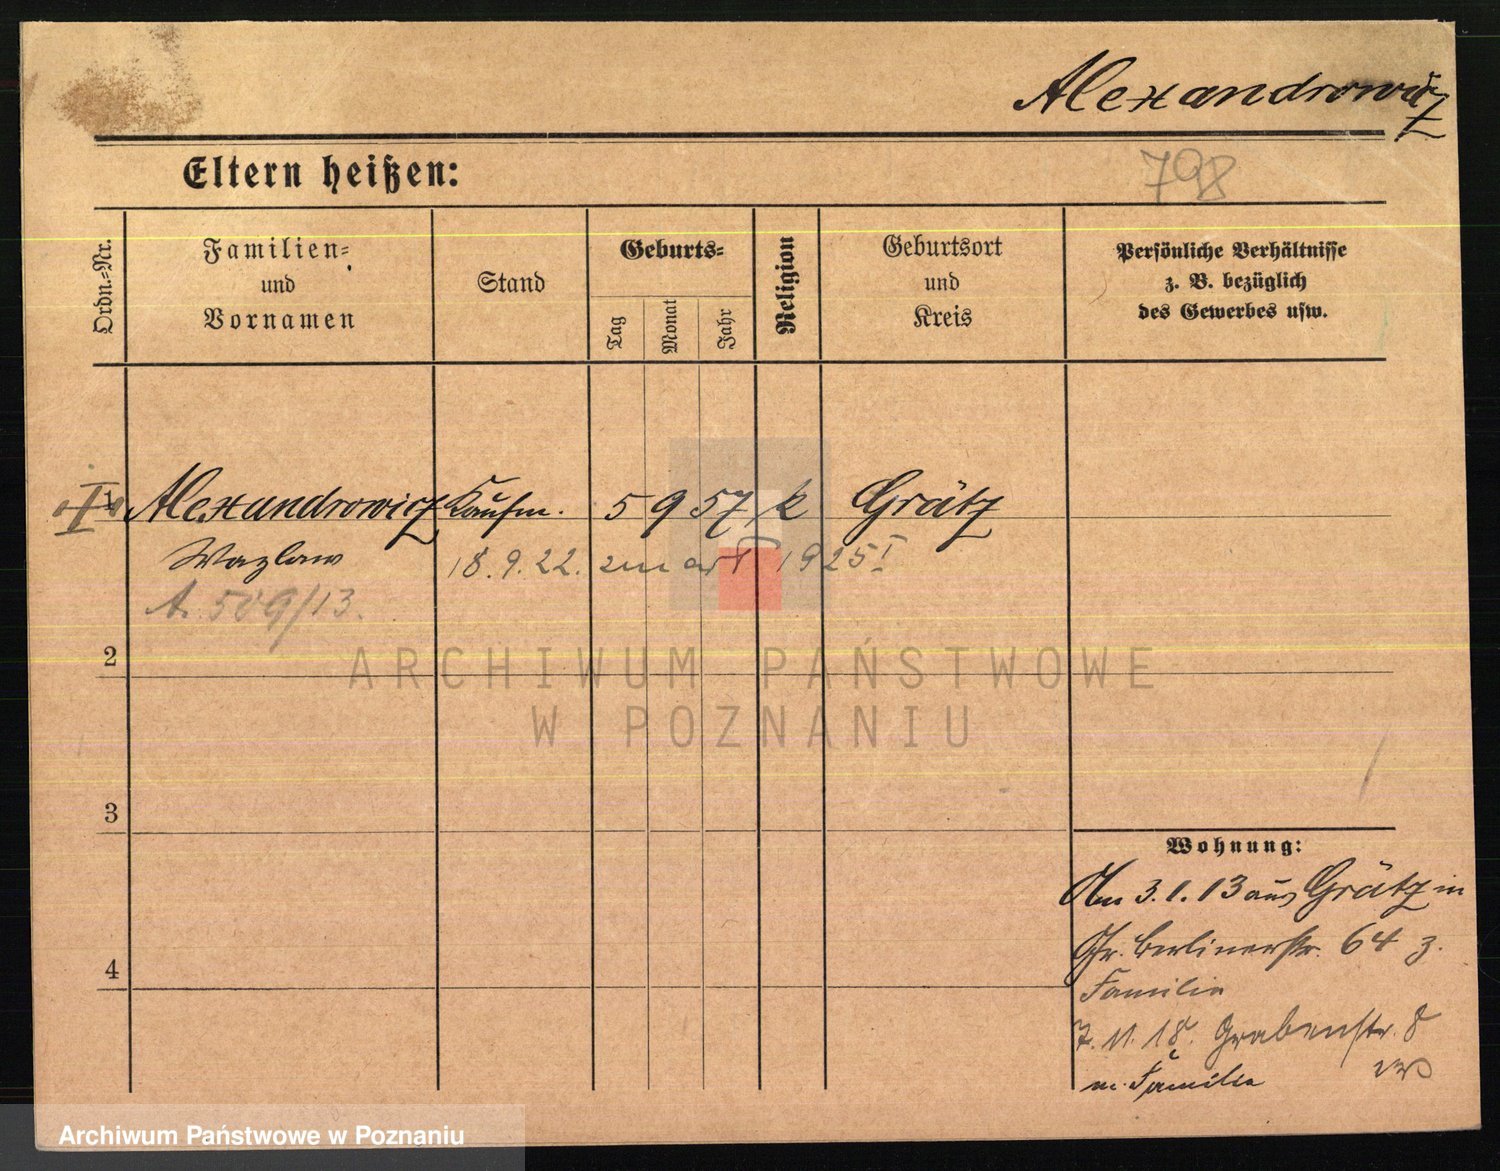 Alexandrowicz
Eltern heißen:
798
Ordn.-Nr.
Familien-
und
Vornamen
Stand
Geburts-
Tag
Monat
Jahr
Religion
Geburtsort
und
Kreis
Persönliche Verhältnisse
z. B. bezüglich
des Gewerbes usw.
1 Alexandrowicz Kaufm. 5 9 57 k Grätz
Wazlaw 18.9.22. zmarł 1925
A. 509/13.
2
3
4
ARCHIWUM PAŃSTWOWE
W POZNANIU
Wohnung:
Am 3.1.13 aus Grätz in
Gr. Berlinerstr. 64 z.
Familie
7.11.18. Grabenstr. 8
m. Familie
Archiwum Państwowe w Poznaniu